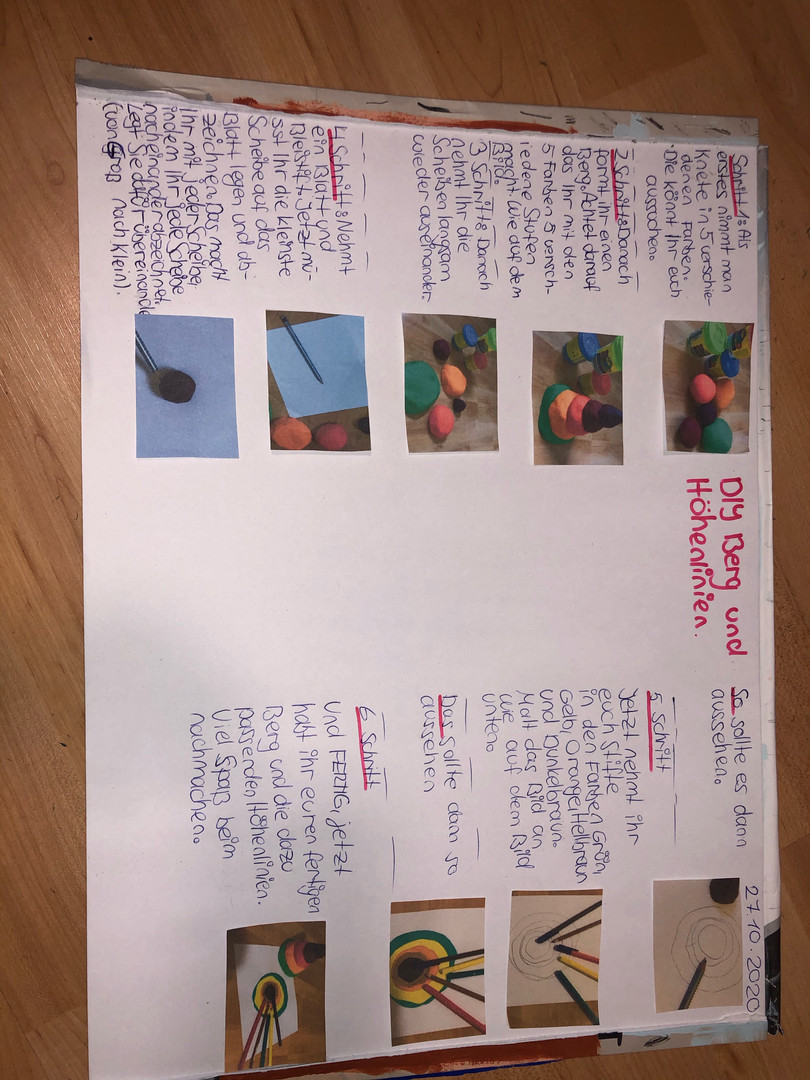 DIY Berg und
Höhenlinien.
27.10.2020
Schritt 1: Als
erstes nimmt man
Knete in 5 verschie-
denen Farben.
Die könnt Ihr euch
aussuchen.
2 Schritt: Danach
formt ihr einen
Berg. Achtet darauf
das Ihr mit den
5 Farben 5 versch-
iedene Stufen
macht. Wie auf dem
Bild.
3 Schritt: Danach
nehmt Ihr die
Scheiben langsam
wieder auseinander.
4. Schritt: Nehmt
ein Blatt und
Bleistift. Jetzt mü-
sst Ihr die kleinste
Scheibe auf das
Blatt legen und ab-
zeichnen. Das macht
Ihr mit jeder Scheibe,
indem Ihr jede Scheibe
nacheinander abzeichnet.
Legt Sie dafür übereinander
(von Groß nach Klein).
So sollte es dann
aussehen.
5. Schritt
Jetzt nehmt ihr
euch stifte
in den Farben Grün,
Gelb, Orange, Hellbraun
und Dunkelbraun.
Malt das Bild an,
wie auf dem Bild
unten.
Das sollte dann so
aussehen
6. Schritt
Und FERTIG, jetzt
habt ihr euren fertigen
Berg und die dazu
passenden Höhenlinien.
Viel Spaß beim
nachmachen.